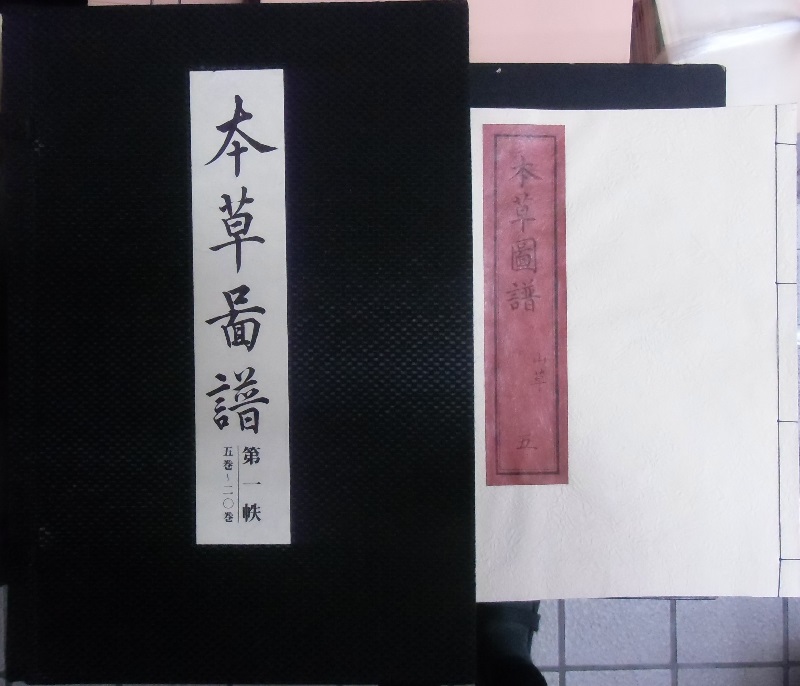 本草啚譜
第一帙
五巻~二〇巻
本草圖譜
山草
五